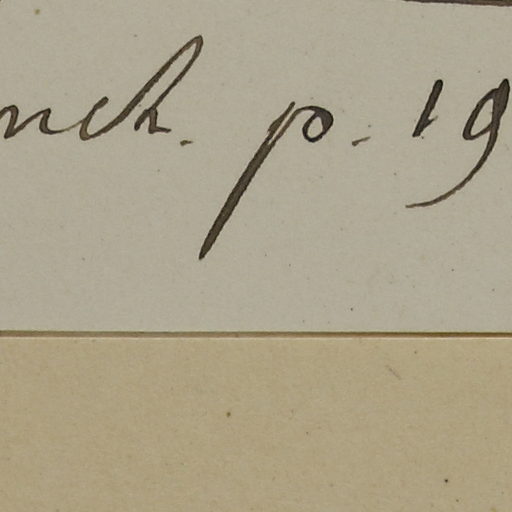 nch. p. 19